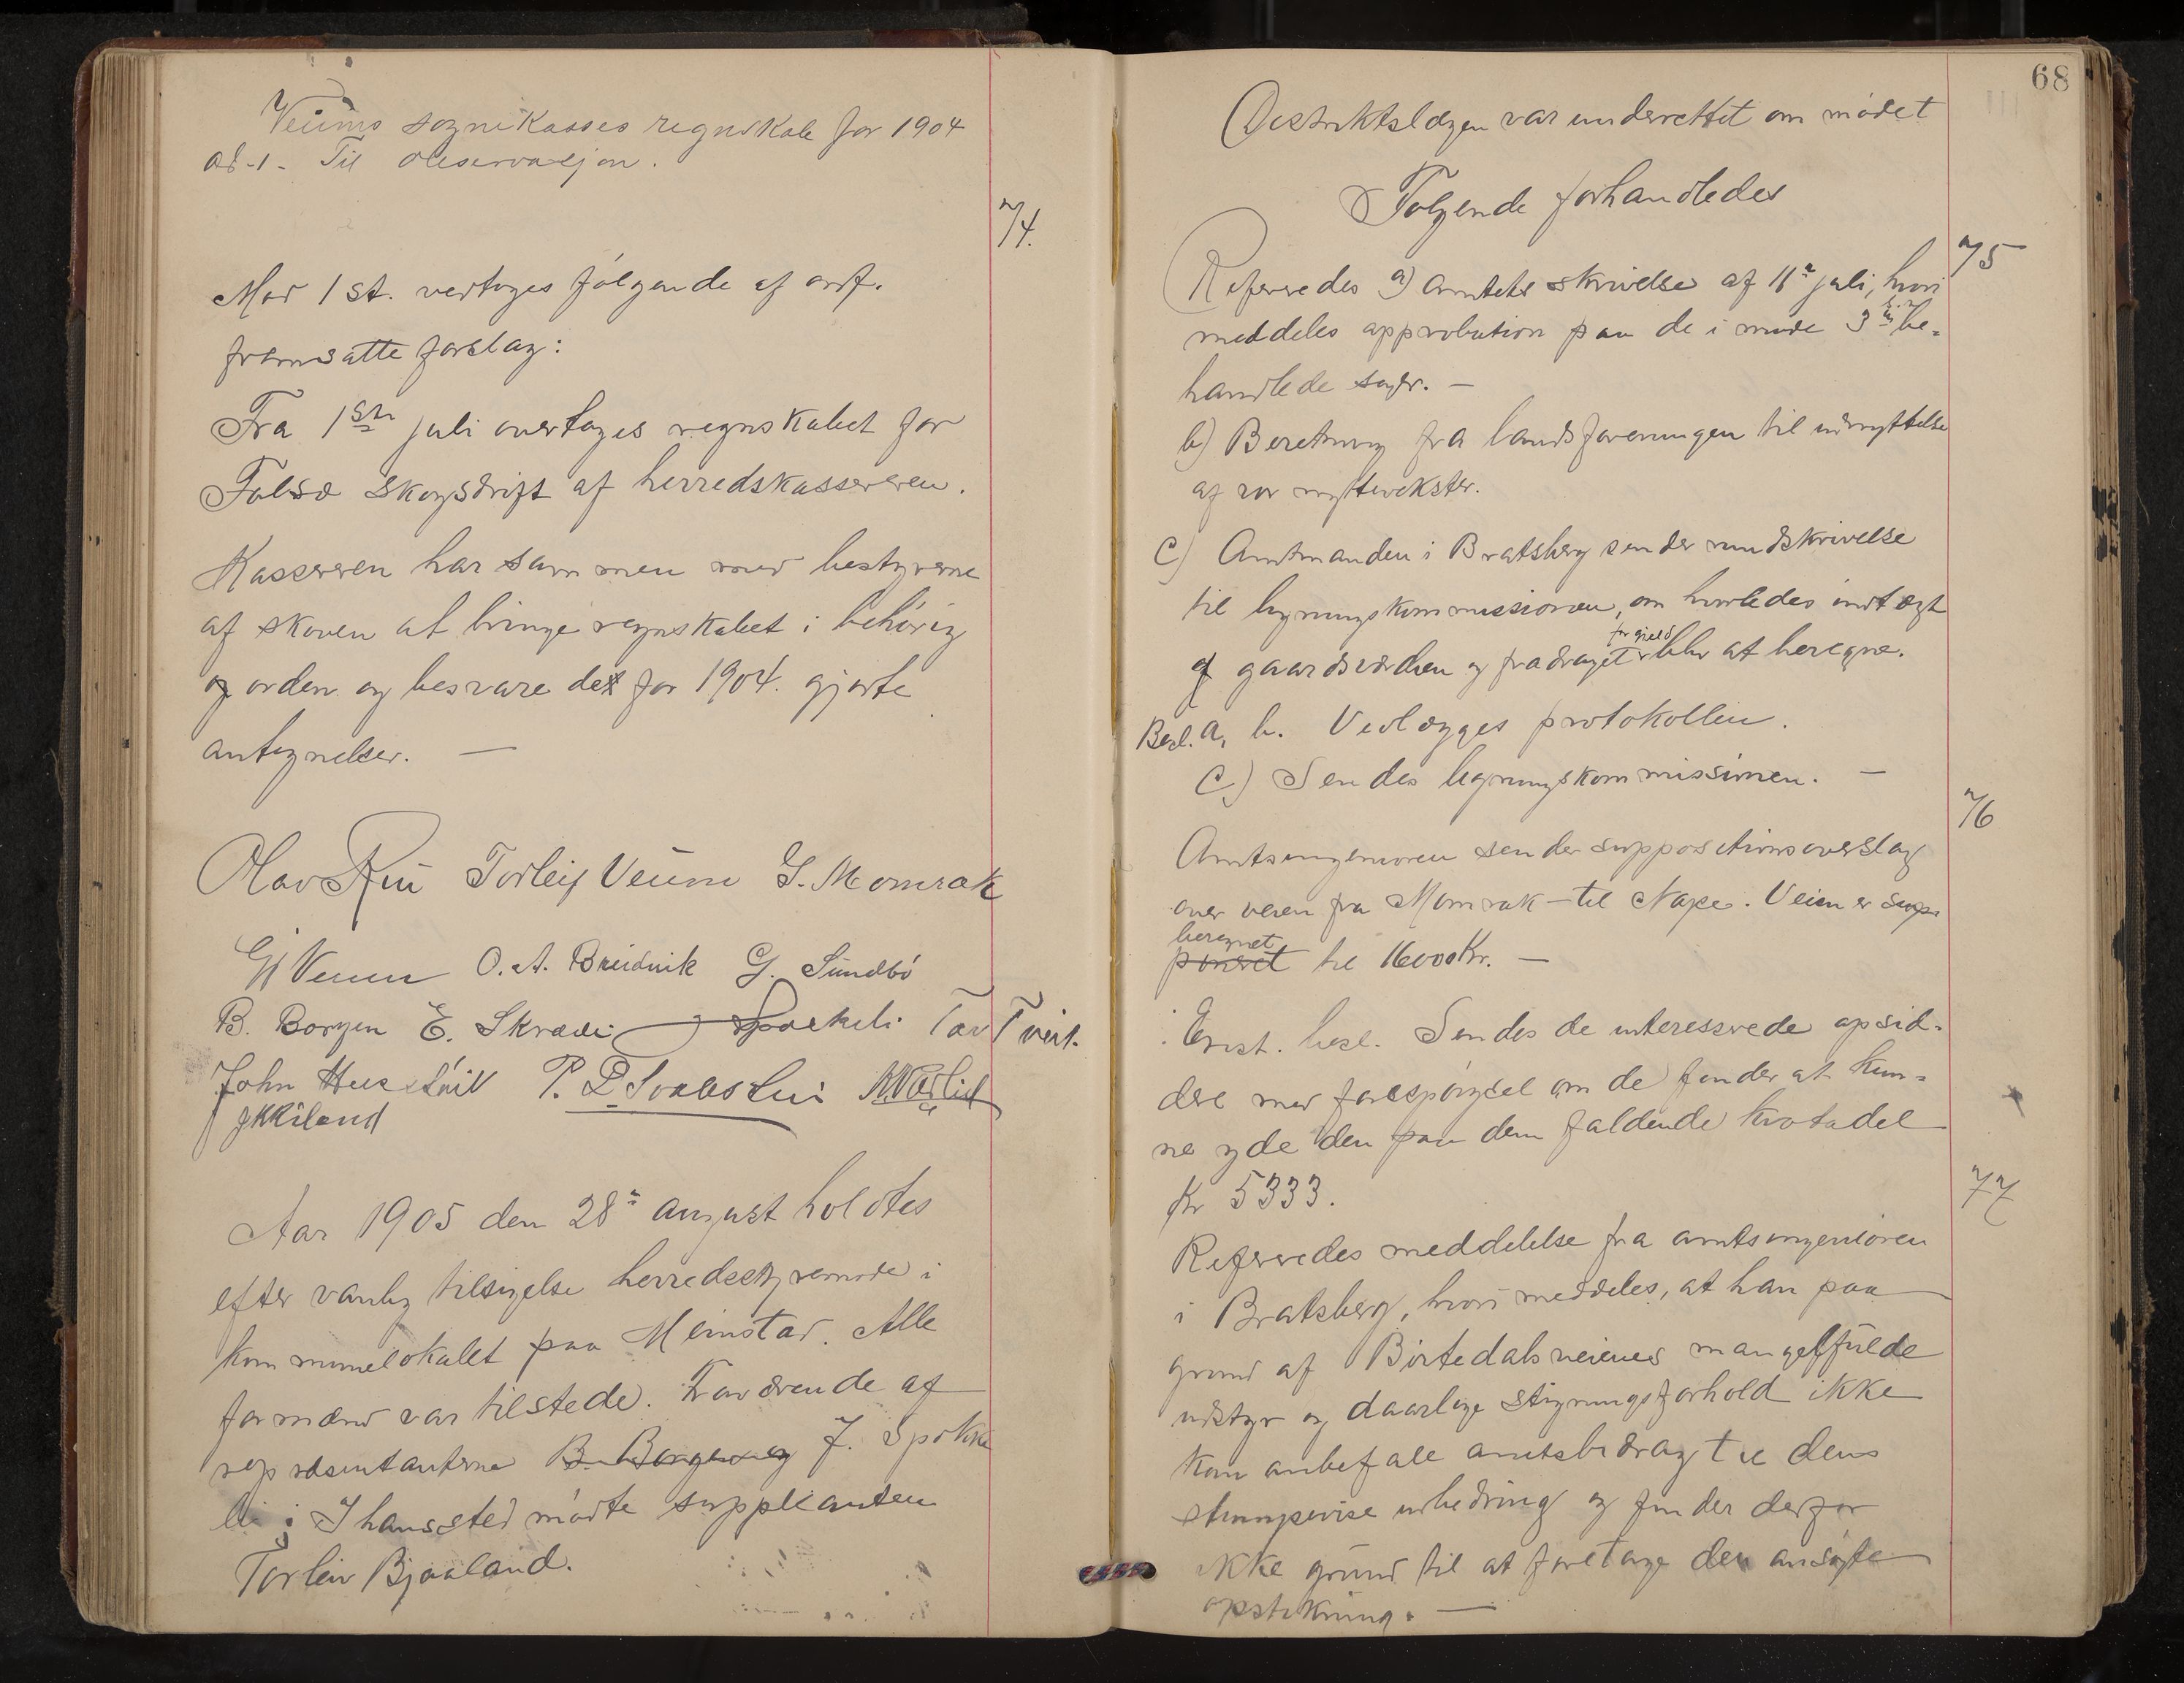 Veums sognekasses regnskab for 1904
ad. 1 - Til decisation.
74.
Mod 1 st. vedtoges følgende af ordf.
fremsatte forslag:
Fra 1ste juli overtages regnskabet for
Folsæ skogsdrift af herredskassereren.
Kassereren har sammen med bestyrerne
af skoven at bringe regnskabet i behørig
og orden og besvare det for 1904 gjorte
antegnelser. —
Olav Rui Torleif Veum G. Momrak
G Veum O. A. Breidvik G. Sundbö
B. Borgen E. Skrædei J Spokkeli Tav Tveit.
John Huvestuil P. D. Svalestui
J K Kiland
Aar 1905 den 28de august holdtes
efter vanlig tilsigelse herredsstyremøde i
kommunelokalet paa Meinstad. Alle
formænd var tilstede. Fraværende af
repræsentanterne B. Borgen og J. Spokke
li i I hans sted mødte suppleanten
Torleiv Bjaaland.
68
Distriktslægen var underrettet om mødet
Følgende forhandledes
75
Referedes a) amtets skrivelse af 11te juli, hvori
meddeles approbation paa de i møde 3 be-
handlede sager. —
b) Beretning fra landsforeningen til udnyttelse
af vor nyttevekster.
c) Amtmanden i Bratsberg sender rundskrivelse
til ligningskommissionen, om hvorledes indtægt
af gaardsværdien og fradraget for gjeld blir at beregne.
Besl. a, b. Vedlægges protokollen.
c) Sendes ligningskommissionen. —
76
Amtsingeniøren sender suppositionsoverslag
over veien fra Momrak — til Nape. Veien er supo
poneret beregnet til 16000 Kr. —
Enst. besl. Sendes de interesserede opsid-
dere med forespørgsel om de finder at kun-
ne yde den paa dem faldende kvotadel
Kr 5333.
77
Referedes meddelelse fra amtsingeniøren
i Bratsberg, hvori meddeles, at han paa
grund af Birtedalsveienes mangelfulde
udstyr og daarlige stigningsforhold ikke
kan anbefale amtsbidrag til dens
stumpevise udbedring og finder derfor
ikke grund til at foretage den ansøgte
opstikning. —